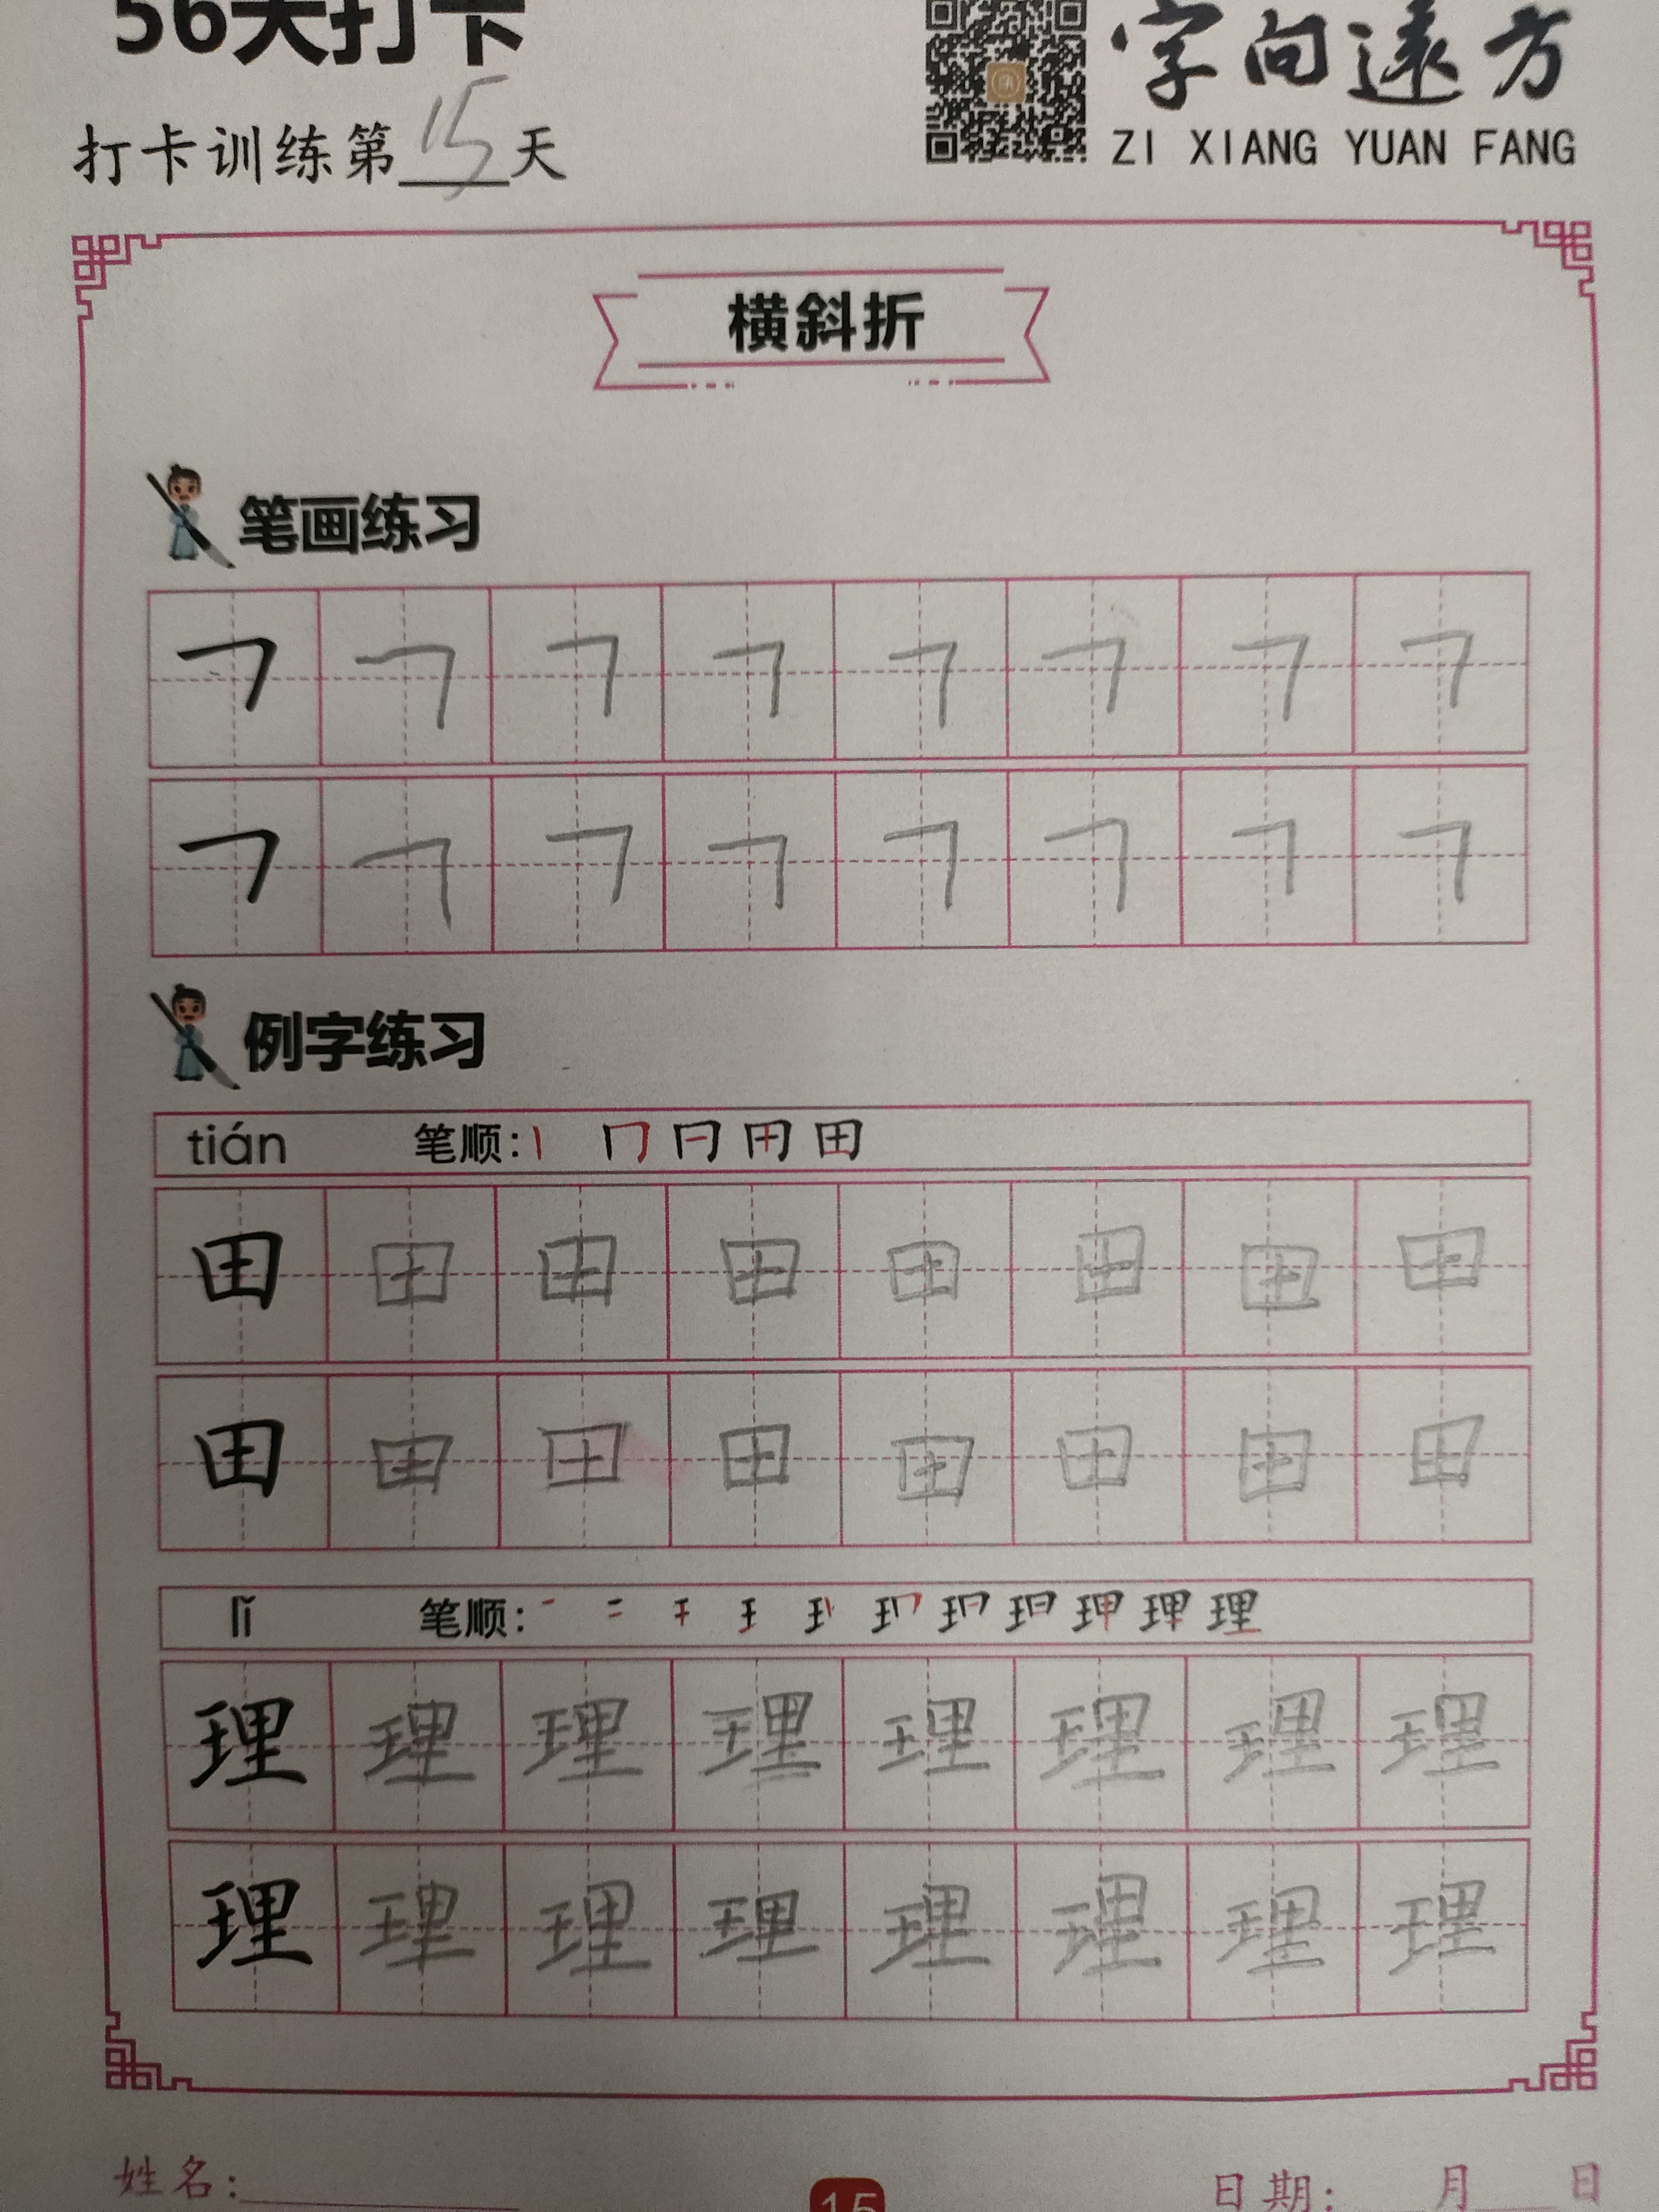 56天打卡
字向遠方
ZI XIANG YUAN FANG
打卡训练第15天
横斜折
笔画练习
㇕ ㇕ ㇕ ㇕ ㇕ ㇕ ㇕ ㇕
㇕ ㇕ ㇕ ㇕ ㇕ ㇕ ㇕ ㇕
例字练习
tián 笔顺:
田 田 田 田 田 田 田 田
田 田 田 田 田 田 田 田
lǐ 笔顺:
理 理 理 理 理 理 理 理
理 理 理 理 理 理 理 理
姓名:
15
日期: 月 日